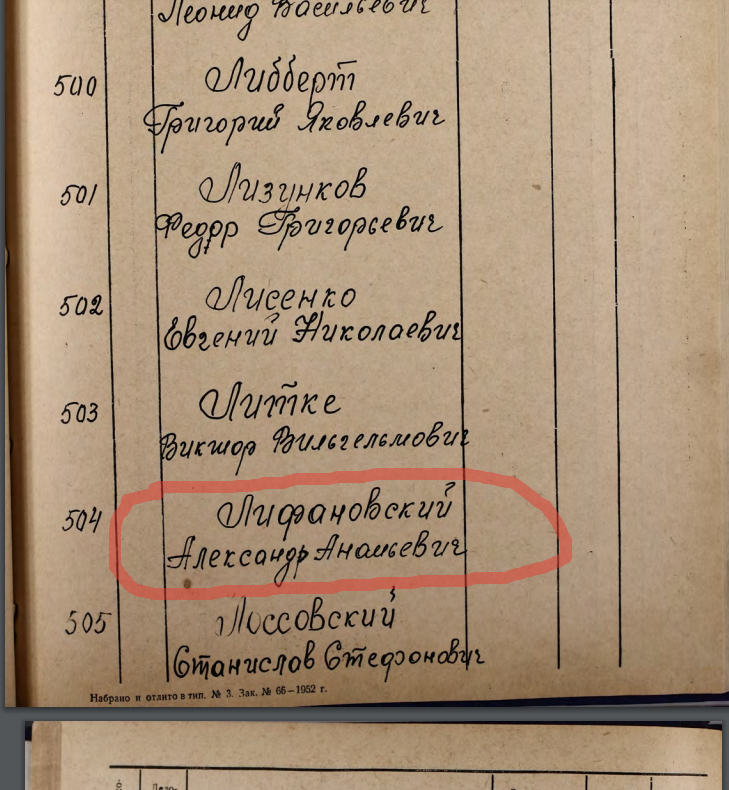 Леонид Васильевич
500 Либберт
Григорий Яковлевич
501 Лизунков
Федор Григорьевич
502 Лисенко
Евгений Николаевич
503 Литке
Виктор Вильгельмович
504 Лифановский
Александр Ананьевич
505 Лоссовский
Станислав Стефанович
Набрано и отлито в тип. № 3. Зак. № 66—1952 г.